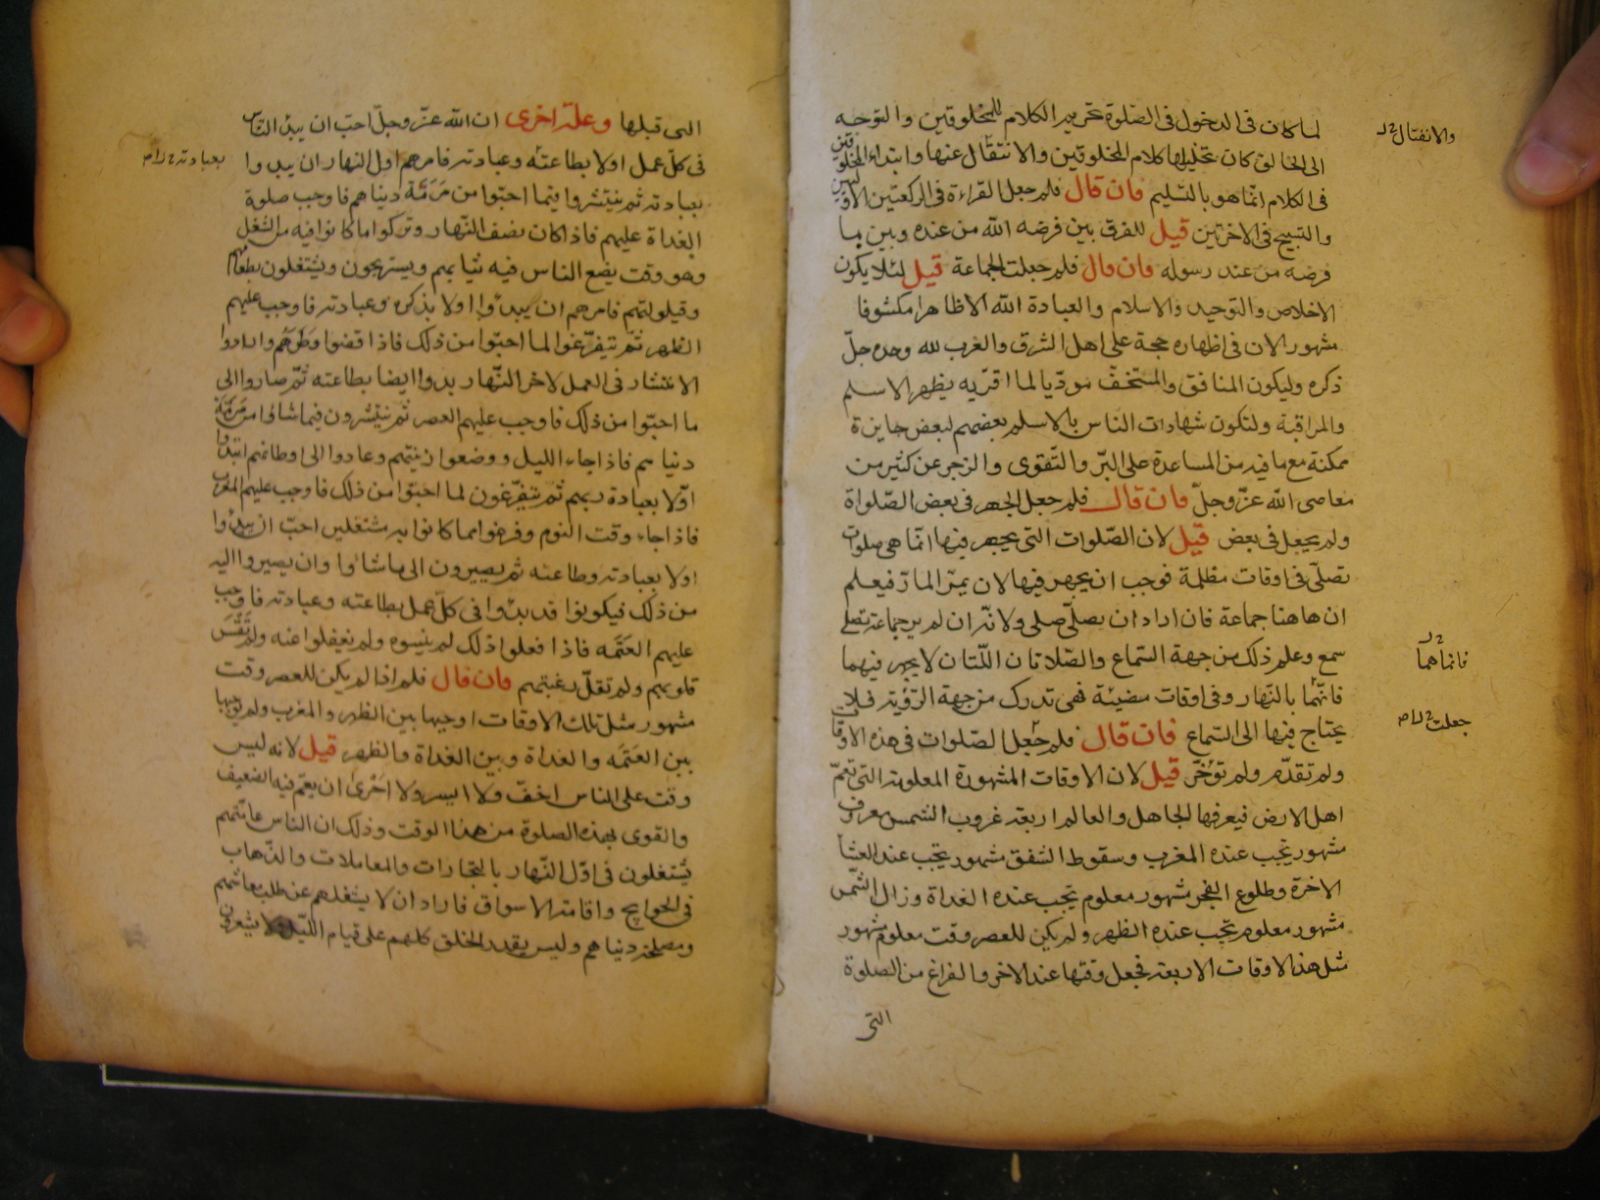 لما كان فى الدخول فى الصلوة تحريم الكلام للمخلوقين والتوجه
الى الخالق كان تحليلها كلام المخلوقين والانتقال عنها وابتداء المخلوقين
فى الكلام انما هو بالتسليم فان قال فلم جعل القراءة فى الركعتين الاوليين
والتسبيح فى الاخرتين قيل للفرق بين فرضه الله من عنده وبين ما
فرضه من عند رسوله فان قال فلم جعلت الجماعة قيل لئلا يكون
الاخلاص والتوحيد والاسلام والعبادة الله الا ظاهرا مكشوفا
مشهورا لان فى اظهاره حجة على اهل الشرق والغرب لله وحده جلّ
ذكره وليكون المنافق والمستخفّ موديا لما اقرّ به يظهر الاسلم
والمراقبة ولتكون شهادات الناس بالاسلم بعضهم لبعض جايزة
ممكنة مع ما فيه من المساعدة على البرّ والتّقوى والزجر عن كثير من
معاصى الله عزّ وجلّ فان قال فلم جعل الجهر فى بعض الصّلواة
ولم يجعل فى بعض قيل لان الصّلوات التى يجهر فيها انّما هى صلوات
تصلّى فى اوقات مظلمة فوجب ان يجهر فيها لان يمرّ المارّ فيعلم
ان هاهنا جماعة فان اراد ان يصلّى صلى ولانّه ان لم ير جماعة تصلى
سمع وعلم ذلك من جهة السّماع والصّلاتان اللّتان لا يجهر فيهما
فانّهما بالنّهار وفى اوقات مضيئة فهى تدرك من جهة الرّؤية فلا
يحتاج فيها الى السّماع فان قال فلم جعل الصّلوات فى هذه الاوقات
ولم تقدّم ولم تؤخّر قيل لان الاوقات المشهورة المعلومة التى تعمّ
اهل الارض فيعرفها الجاهل والعالم اربعة غروب الشمس معروف
مشهور تجب عنده المغرب وسقوط الشفق مشهور تجب عند العشأ
الاخرة وطلوع الفجر مشهور معلوم تجب عنده الغداة وزوال الشّمس
مشهور معلوم تجب عنده الظهر ولم يكن للعصر وقت معلوم مشهور
مثل هذا الاوقات الاربعة فجعل وقتها عند الاخر والفراغ من الصلوة
التى
والانفتال
فانما هما
جعلت
التى قبلها وعلة اخرى ان الله عزّ وجلّ احبّ ان يبدأ النّاس
فى كلّ عمل اولا بطاعته وعبادته فامرهم اول النهار ان يبدوا
بعبادته ثم ينتشروا فيما احبّوا من مَرَمّة دنياهم فاوجب صلوة
الغداة عليهم فاذا كان نصف النّهار وتركوا ما كانوا فيه من الشغل
وهو وقت يضع الناس فيه ثيابهم ويستريحون ويشتغلون بطعامهم
وقيلولتهم فامرهم ان يبدأوا اولا بذكره وعبادته فاوجب عليهم
الظهر ثمّ يتفرّغوا لما احبّوا من ذلك فاذا قضوا وطرهم وارادوا
الانتشار فى العمل لاخر النّهار بدوا ايضا بطاعته ثمّ صاروا الى
ما احبّوا من ذلك فاوجب عليهم العصر ثم ينتشرون فيما شاؤا من مَرَمّة
دنياهم فاذا جاء الليل ووضعوا زينتهم وعادوا الى اوطانهم ابتدؤا
اوّلا بعبادة ربهم ثم يتفرّغون لما احبّوا من ذلك فاوجب عليهم المغرب
فاذا جاء وقت النوم وفرغوا مما كانوا به مشتغلين احبّ ان يبدأوا
اولا بعبادته وطاعته ثم يصيرون الى ما شاؤا وان يصيروا اليه
من ذلك فيكونوا قد بدئوا فى كلّ عمل بطاعته وعبادته فاوجب
عليهم العَتَمه فاذا فعلوا ذلك لم ينسوه ولم يغفلوا عنه ولم تقس
قلوبهم ولم تقلّ رغبتهم فان قال فلم اذا لم يكن للعصر وقت
مشهور مثل تلك الاوقات اوجبها بين الظهر والمغرب ولم يوجبها
بين العَتَمه والغداة وبين الغداة والظهر قيل لانه ليس
وقت على الناس اخفّ ولا ايسر ولا احْرىٰ ان يعمّ فيه الضعيف
والقوى بهذه الصلوة من هذا الوقت وذلك ان الناس عامّتهم
يشتغلون فى اوّل النّهار بالتجارات والمعاملات والذّهاب
فى الحوايج واقامة الاسواق فاراد ان لا يشغلهم عن طلب معاشهم
ومصلحة دنياهم وليس يقدر الخلق كلهم على قيام الليل ولا يشعرون
بعبادته